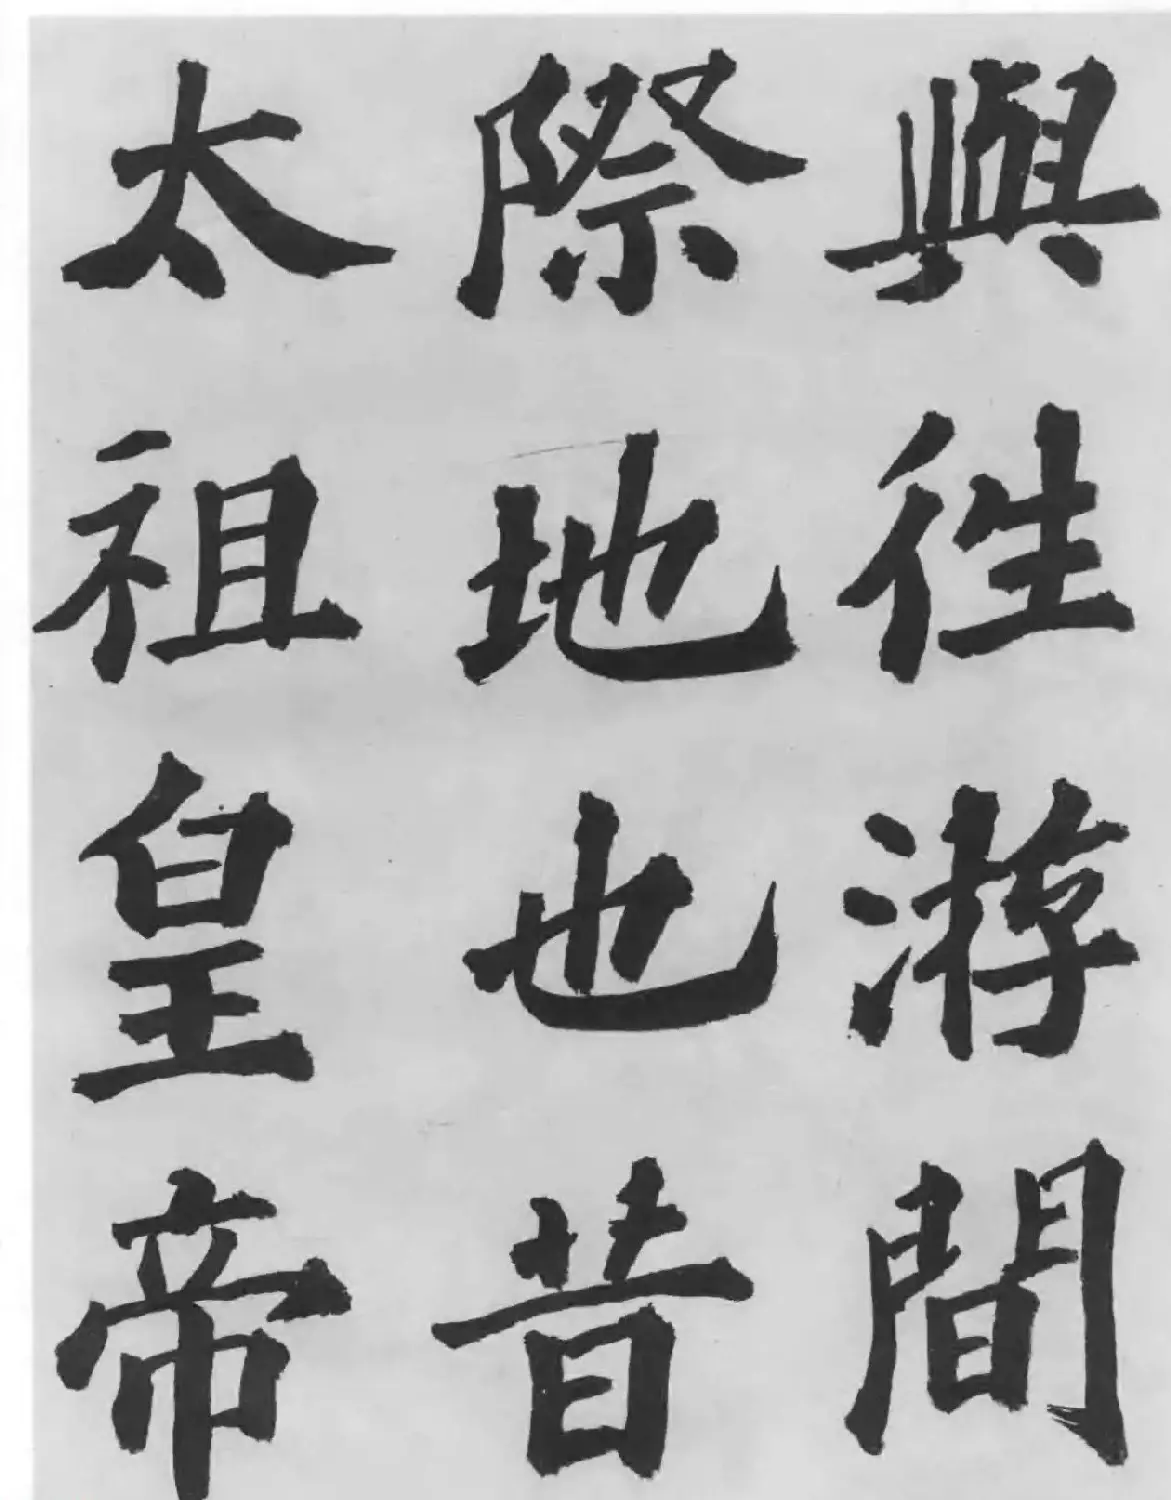 與徃游間
際地也昔
太祖皇帝